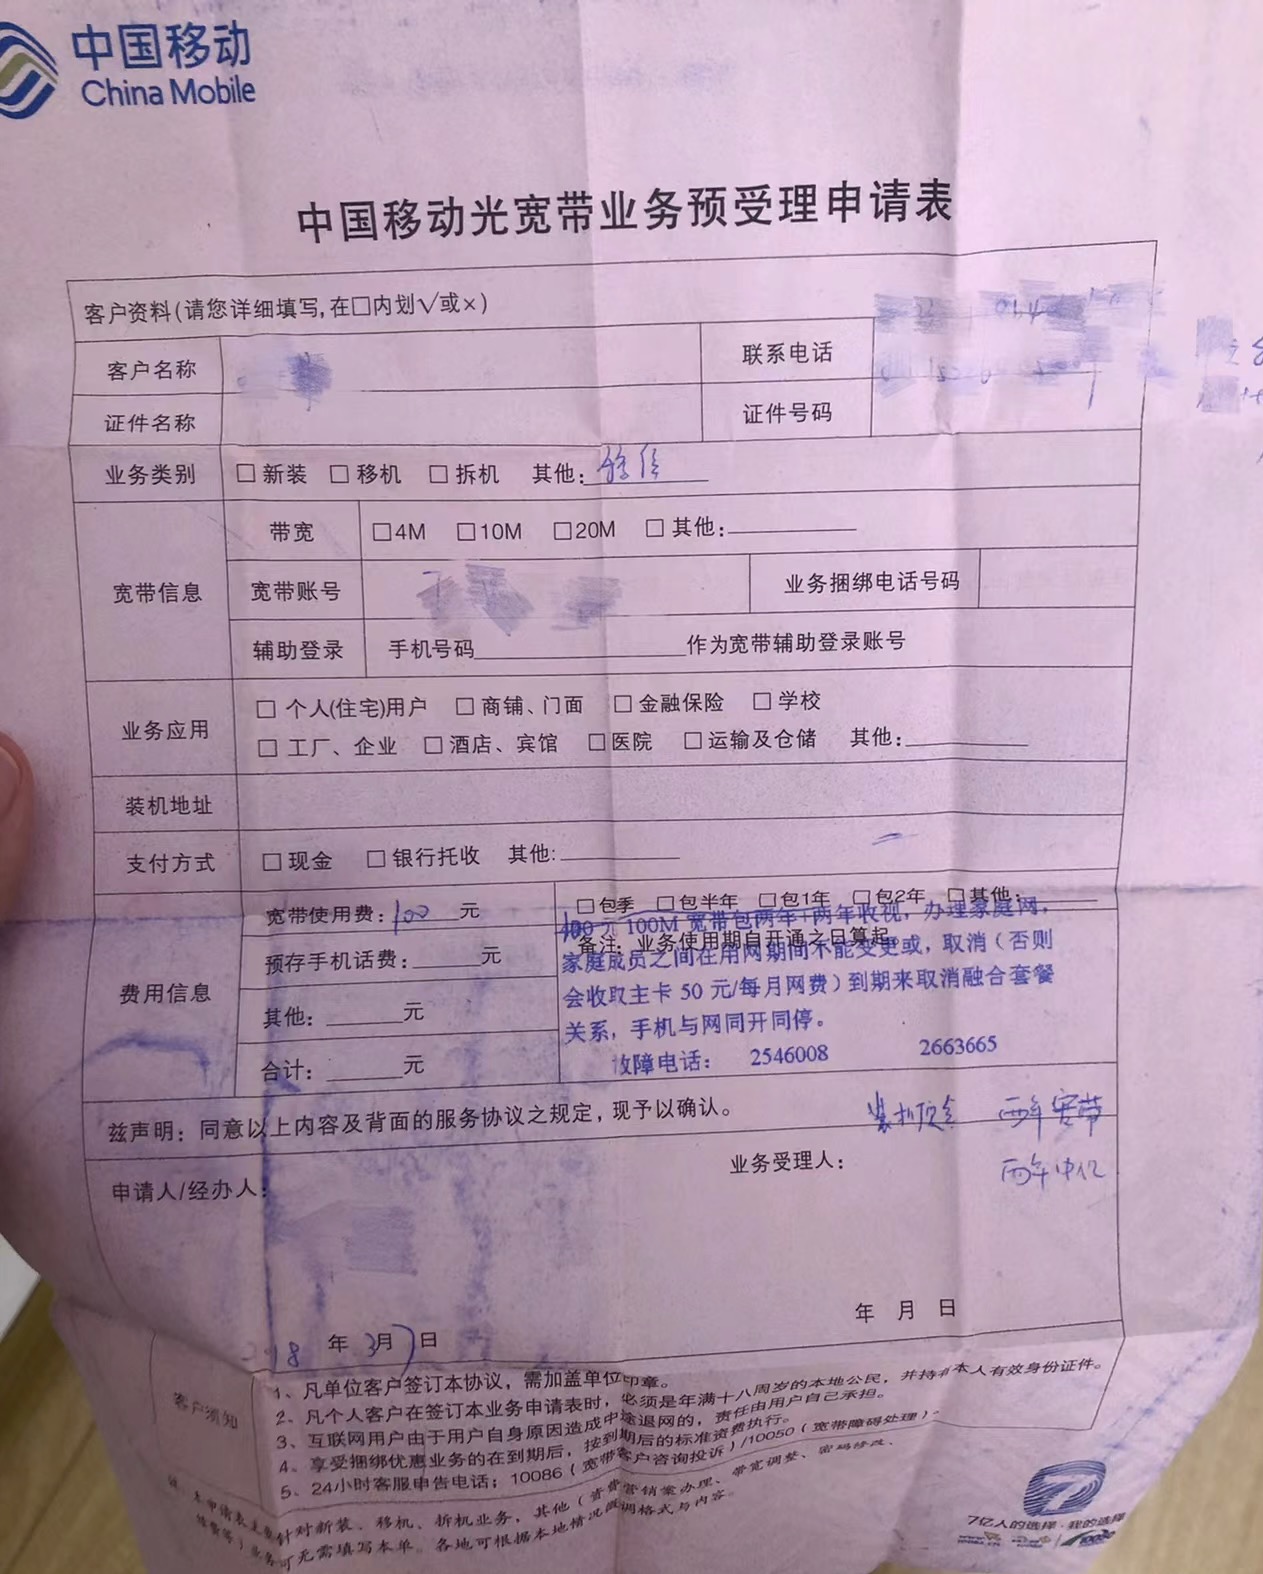 中国移动
China Mobile
中国移动光宽带业务预受理申请表
客户资料(请您详细填写,在□内划√或×)
客户名称
联系电话
证件名称
证件号码
业务类别 □ 新装 □ 移机 □ 拆机 其他:
宽带信息
带宽 □4M □10M □20M □ 其他:
宽带账号
业务捆绑电话号码
辅助登录 手机号码 作为宽带辅助登录账号
业务应用
□ 个人(住宅)用户 □ 商铺、门面 □ 金融保险 □ 学校
□ 工厂、企业 □ 酒店、宾馆 □ 医院 □ 运输及仓储 其他:
装机地址
支付方式 □ 现金 □ 银行托收 其他:
费用信息
宽带使用费: 100 元
预存手机话费: 元
其他: 元
合计: 元
□包季 □包半年 □包1年 □包2年 □其他:
100元 100M 宽带包两年+两年收视,办理家庭网,
备注:业务使用期自开通之日算起
家庭成员之间在用网期间不能变更或,取消(否则
会收取主卡 50 元/每月网费)到期来取消融合套餐
关系,手机与网同开同停。
故障电话: 2546008 2663665
兹声明:同意以上内容及背面的服务协议之规定,现予以确认。
两年宽带
申请人/经办人:
业务受理人:
两年
年 月 日
8 年 3月7日
客户须知
1、凡单位客户签订本协议,需加盖单位印章。
2、凡个人客户在签订本业务申请表时,必须是年满十八周岁的本地公民,并持有本人有效身份证件。
3、互联网用户由于用户自身原因造成中途退网的,责任由用户自己承担。
4、享受捆绑优惠业务的在到期后,按到期后的标准资费执行。
5、24小时客服申告电话:10086(宽带客户咨询投诉)/10050(宽带障碍处理)
本申请表主要针对新装、移机、拆机业务,其他(资费营销案办理、带宽调整、密码修改、
续费等)业务可无需填写本单。各地可根据本地情况微调格式与内容。
7亿人的选择·我的选择